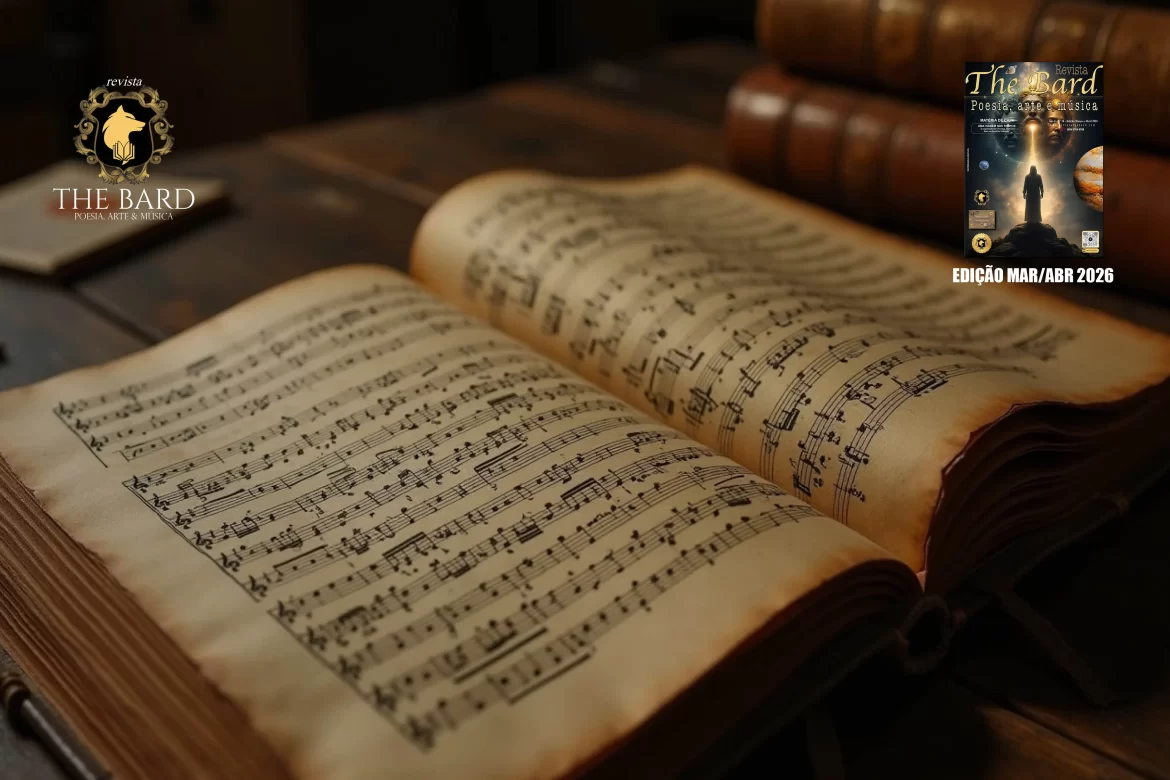 revista
THE BARD
POESIA, ARTE & MÚSICA
Revista
The Bard
Poesia, arte e música
EDIÇÃO MAR/ABR 2026